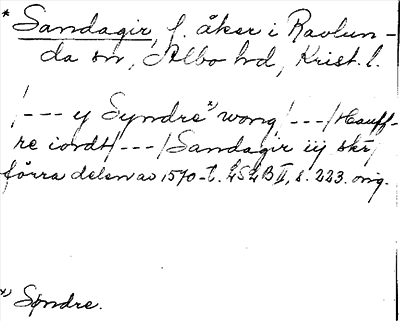 * Sandagir, f. åker i Ravlun-
da sn, Albo hd, Krist. l.
/---y Syndre*) wong/---/Hauff-
re iordt/---/Sandagir iij skr/
förra delen av 1570-t. LSLB II, s. 223. orig.
*) Søndre.